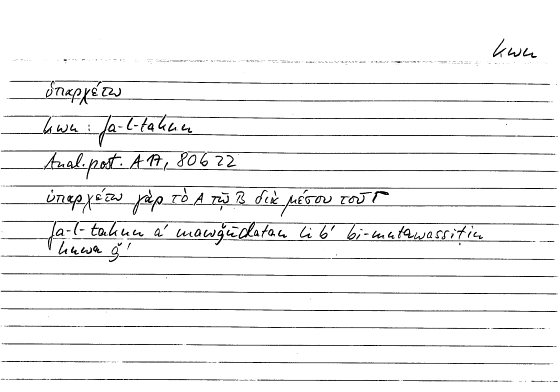 kwn
ὑπαρχέτω
kwn : fa-l-takun
Anal. post. A 17, 80b22
ὑπαρχέτω γὰρ τὸ A τῷ B διὰ μέσου τοῦ Γ
fa-l-takun a' mawǧūdatan li b' bi-mutawassiṭin
huwa ǧ'